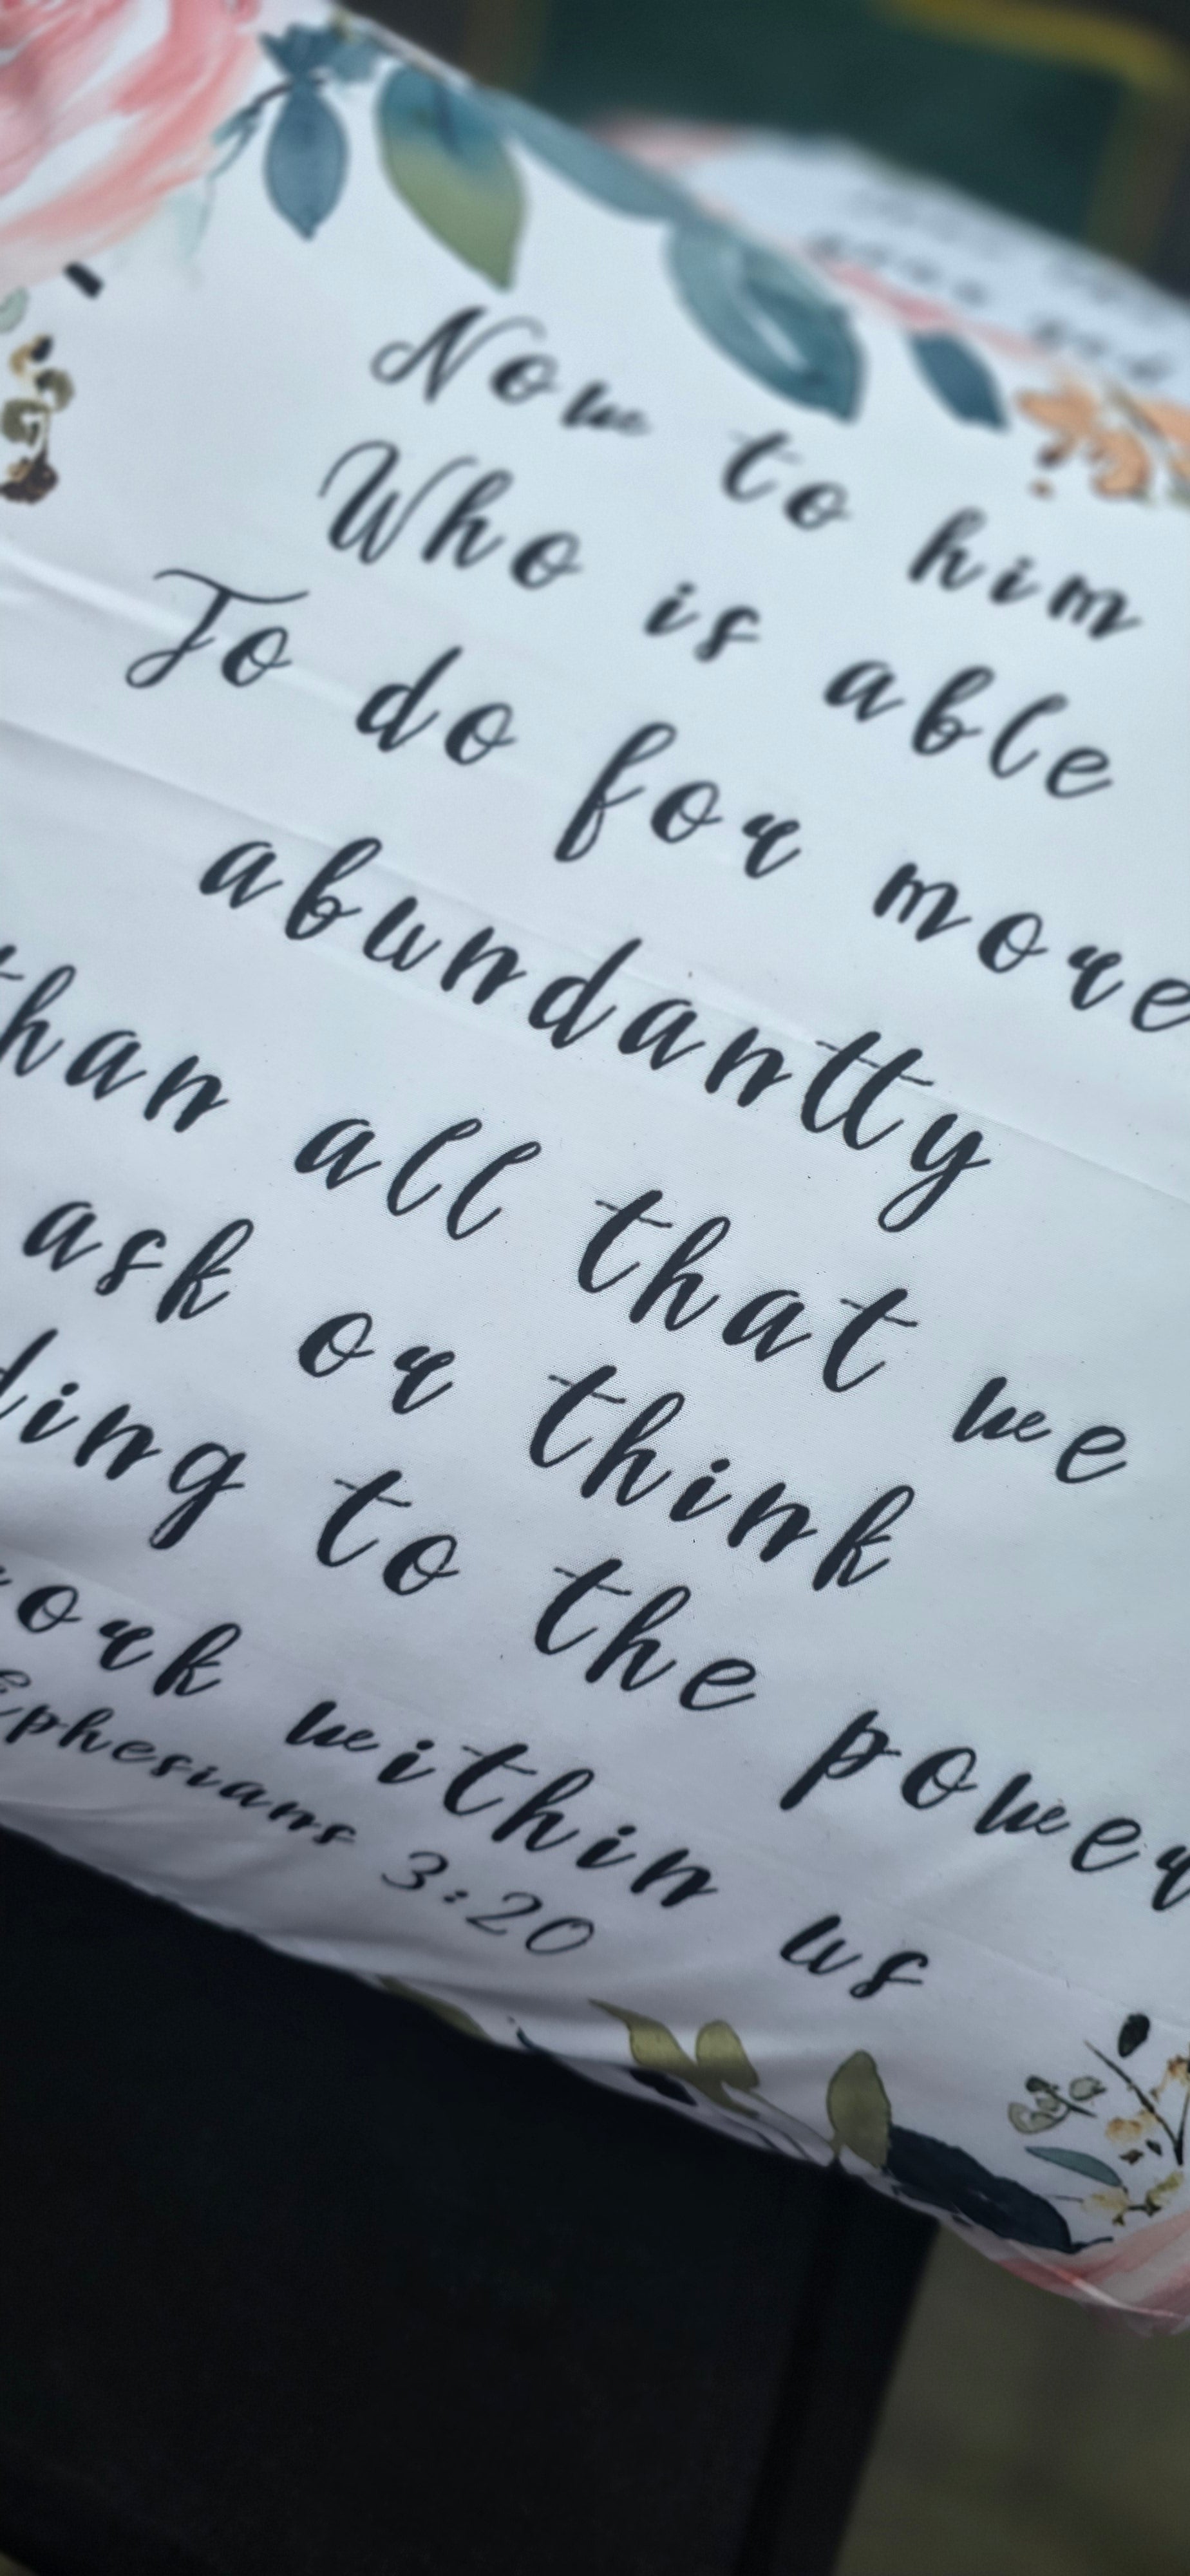 Now to him
Who is able
To do for more
abundantty
than all that we
ask or think
ding to the power
ork within us
Ephesians 3:20